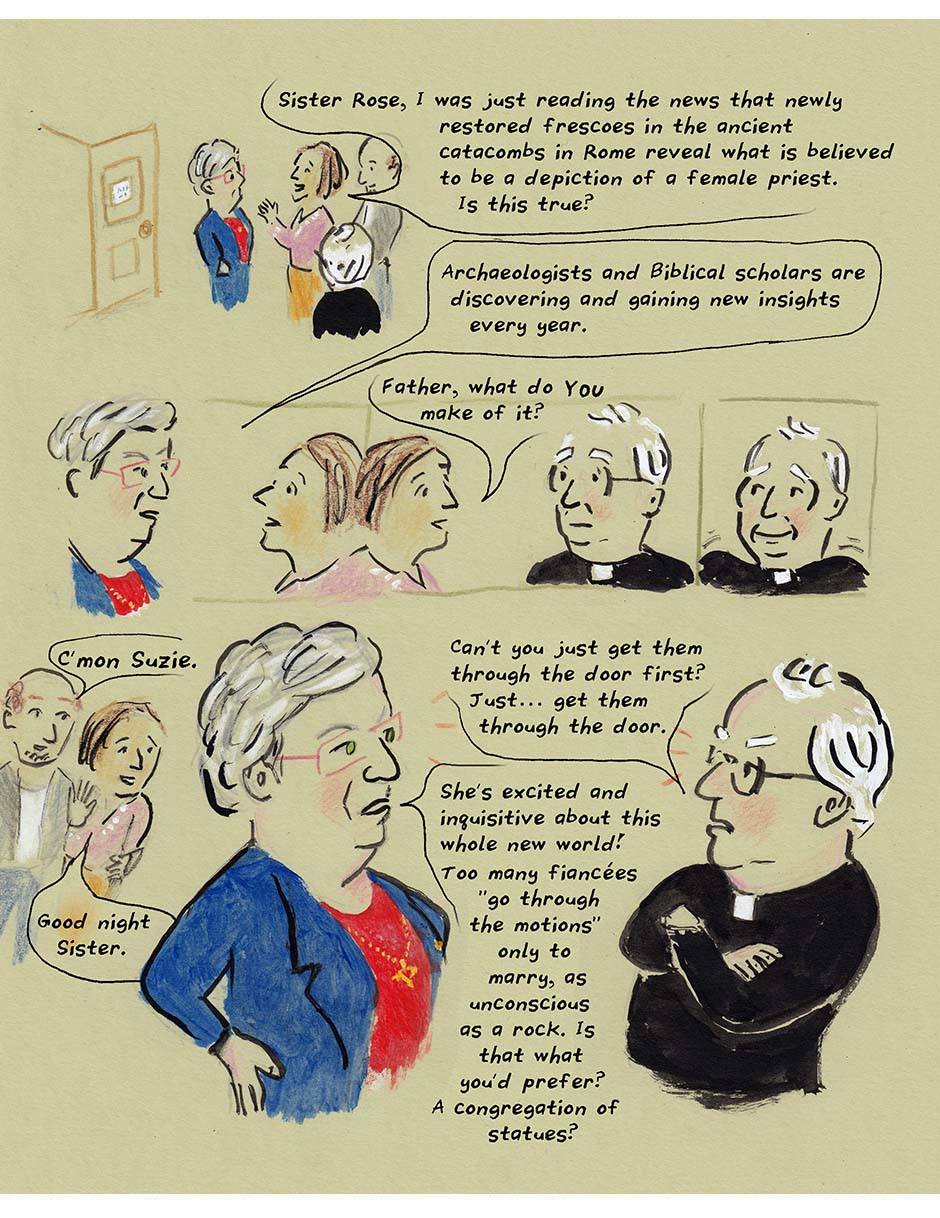 Sister Rose, I was just reading the news that newly
restored frescoes in the ancient
catacombs in Rome reveal what is believed
to be a depiction of a female priest.
Is this true?
Archaeologists and Biblical scholars are
discovering and gaining new insights
every year.
Father, what do YOU
make of it?
C'mon Suzie.
Good night
Sister.
Can't you just get them
through the door first?
Just... get them
through the door.
She's excited and
inquisitive about this
whole new world!
Too many fiancées
"go through
the motions"
only to
marry, as
unconscious
as a rock. Is
that what
you'd prefer?
A congregation of
statues?